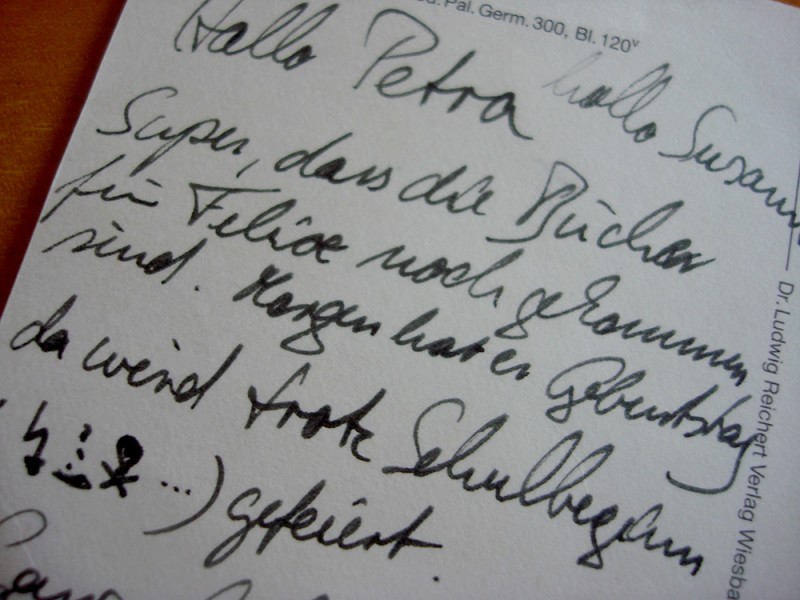 Pal. Germ. 300, Bl. 120v
Hallo Petra hallo Susann
Super, dass die Bücher
für Felix noch gekommen
sind. Morgen hat er Geburtstag
da wird trotz Schulbeginn
...) gefeiert.
Dr. Ludwig Reichert Verlag Wiesba